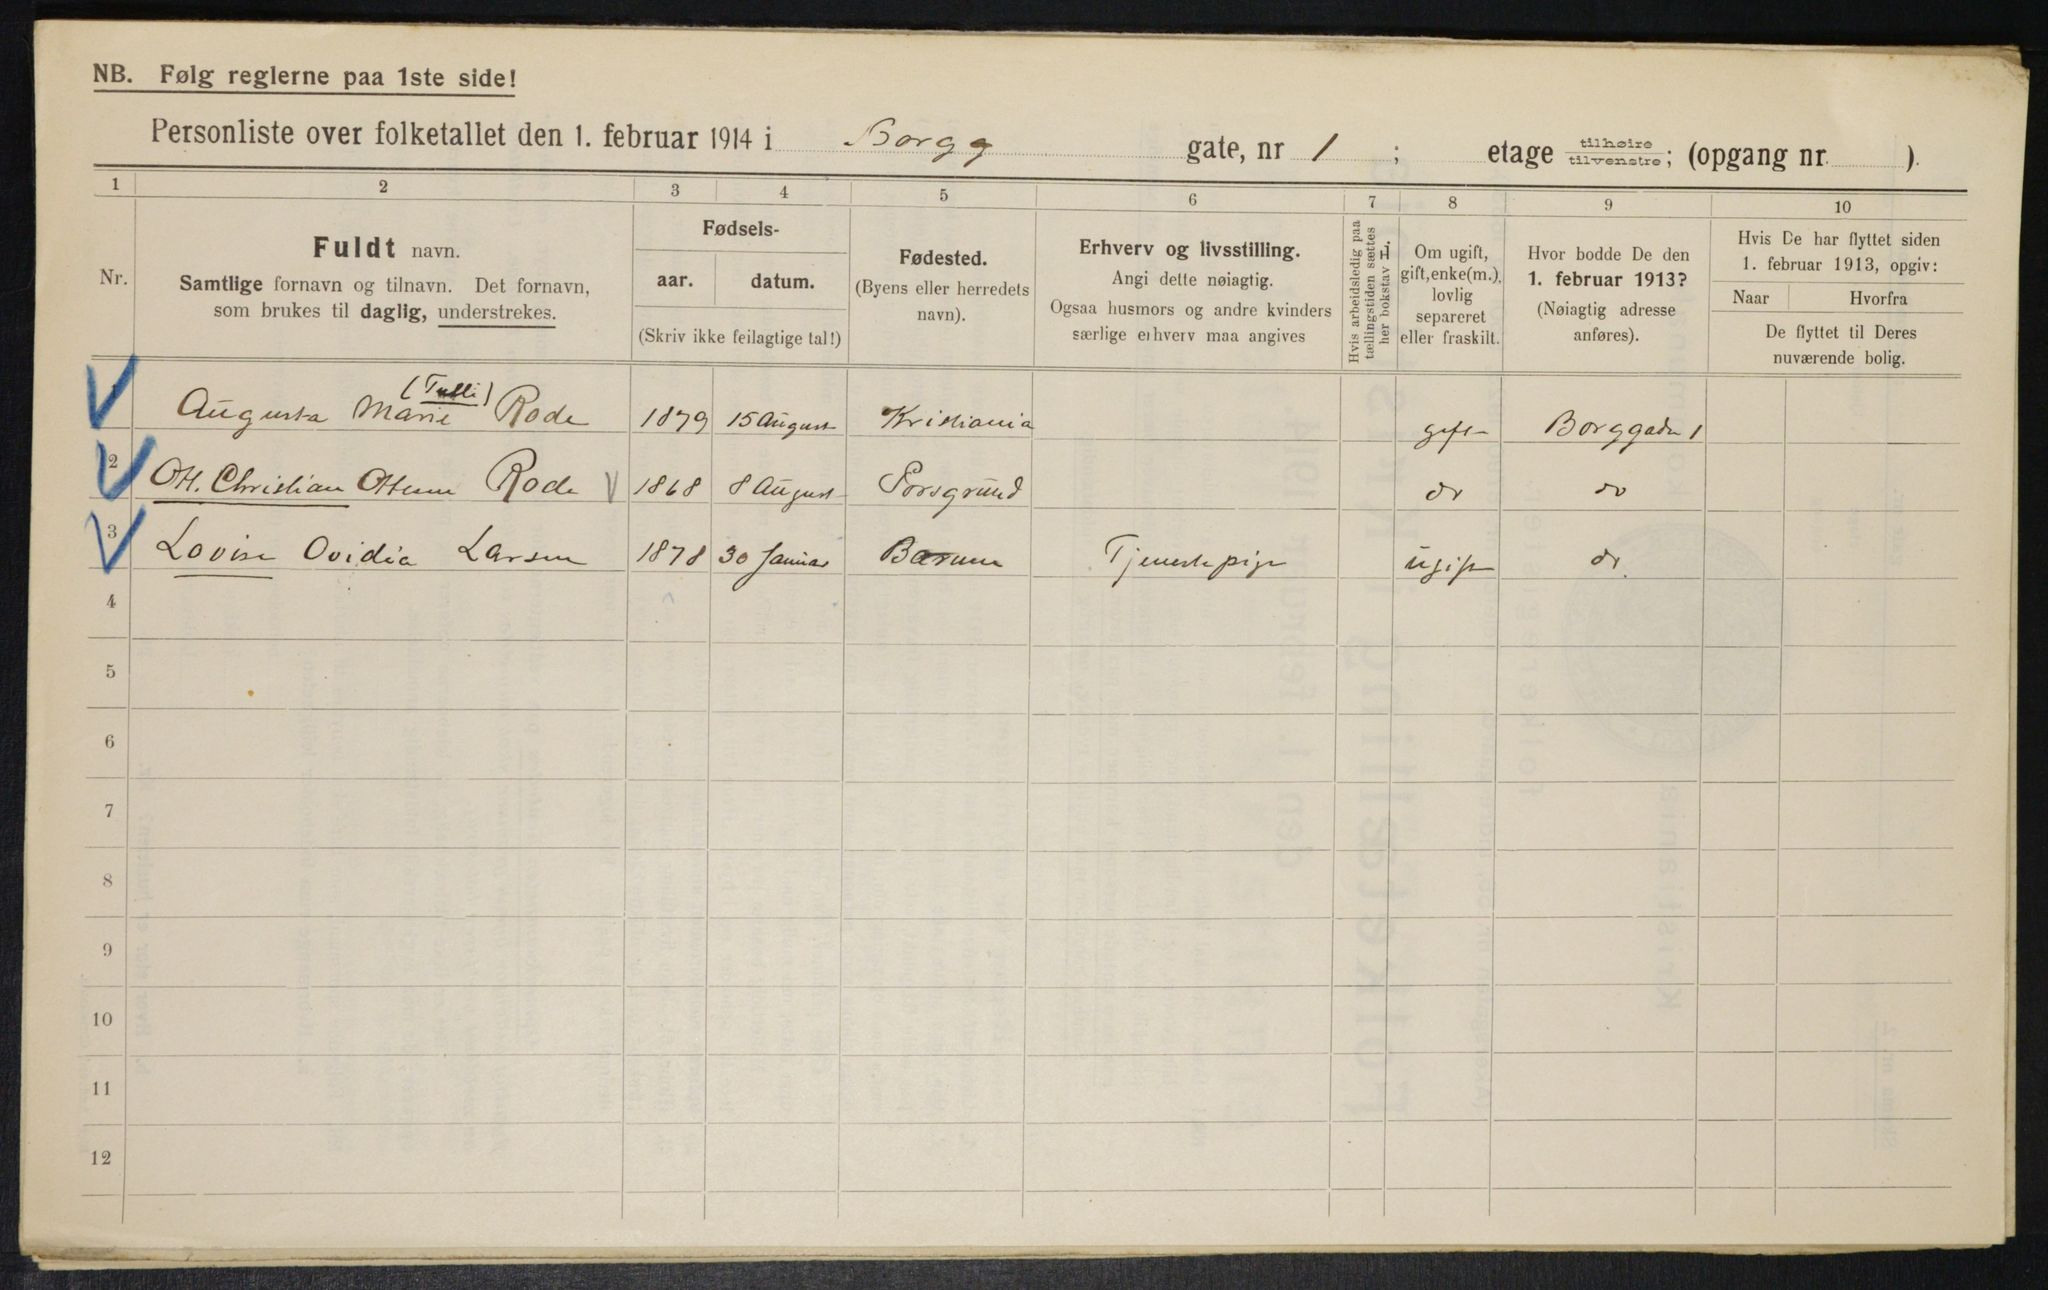 NB. Følg reglerne paa 1ste side!
Personliste over folketallet den 1. februar 1914 i Borgg gate, nr 1 ; etage tilhøire tilvenstre ; (opgang nr ).
1 2 3 4 5 6 7 8 9 10
Nr.
Fuldt navn.
Samtlige fornavn og tilnavn. Det fornavn,
som brukes til daglig, understrekes.
Fødsels-
aar. datum.
(Skriv ikke feilagtige tal!)
Fødested.
(Byens eller herredets
navn).
Erhverv og livsstilling.
Angi dette nøiagtig.
Ogsaa husmors og andre kvinders
særlige erhverv maa angives
Hvis arbeidsledig paa
tællingstiden sættes
her bokstav L.
Om ugift,
gift, enke(m.),
lovlig
separeret
eller fraskilt.
Hvor bodde De den
1. februar 1913?
(Nøiagtig adresse
anføres).
Hvis De har flyttet siden
1. februar 1913, opgiv:
Naar Hvorfra
De flyttet til Deres
nuværende bolig.
(Tulli)
Augusta Marie Rode 1879 15 August Kristiania gift Borggaden 1
2 Ott. Christian Ottesen Rode 1868 8 August Porsgrund do do
3 Lovise Ovidia Larsen 1878 30 Januar Bærum Tjenestepige ugift do
4
5
6
7
8
9
10
11
12